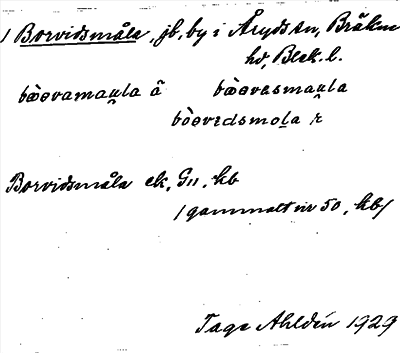 1 Borvidsmåla, jb, by i Åryds sn, Bräkne
hd, Blek. l.
bòɵvamau̯la å bòɵvɐsmau̯la
bòɵvɪdsmoḷa r
Borvidsmåla ek, G11, kb
/gammalt nr 50, kb/
Tage Ahldén 1929